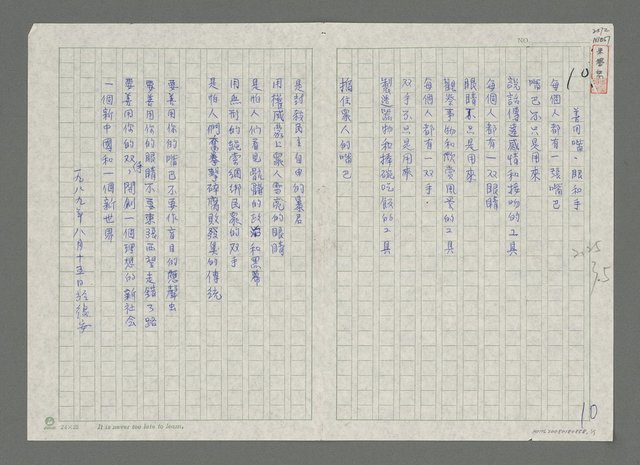 善用嘴、眼和手
每個人都有一張嘴巴
嘴巴不只是用來
說話傳達感情和接吻的工具
每個人都有一双眼睛
眼睛不只是用來
觀察事物和欣賞風景的工具
每個人都有一双手
双手不只是用來
製造器物和捧碗吃飯的工具
摀住眾人的嘴巴
是討教民主自由的暴君
用權威遮上眾人雪亮的眼睛
是怕人們看見骯髒的政治和黑幕
用無形的繩索綑綁民眾的双手
是怕人們奮拳擊碎腐敗發臭的傳統
要善用你的嘴巴不要作盲目的應聲虫
要善用你的眼睛不要東張西望走錯了路
要善用你的双手開創一個理想的新社会
一個新中國和一個新世界
一九八九年八月十五日於後安
NO.
10
21.25
3.5
10
24×25
It is never too late to learn.